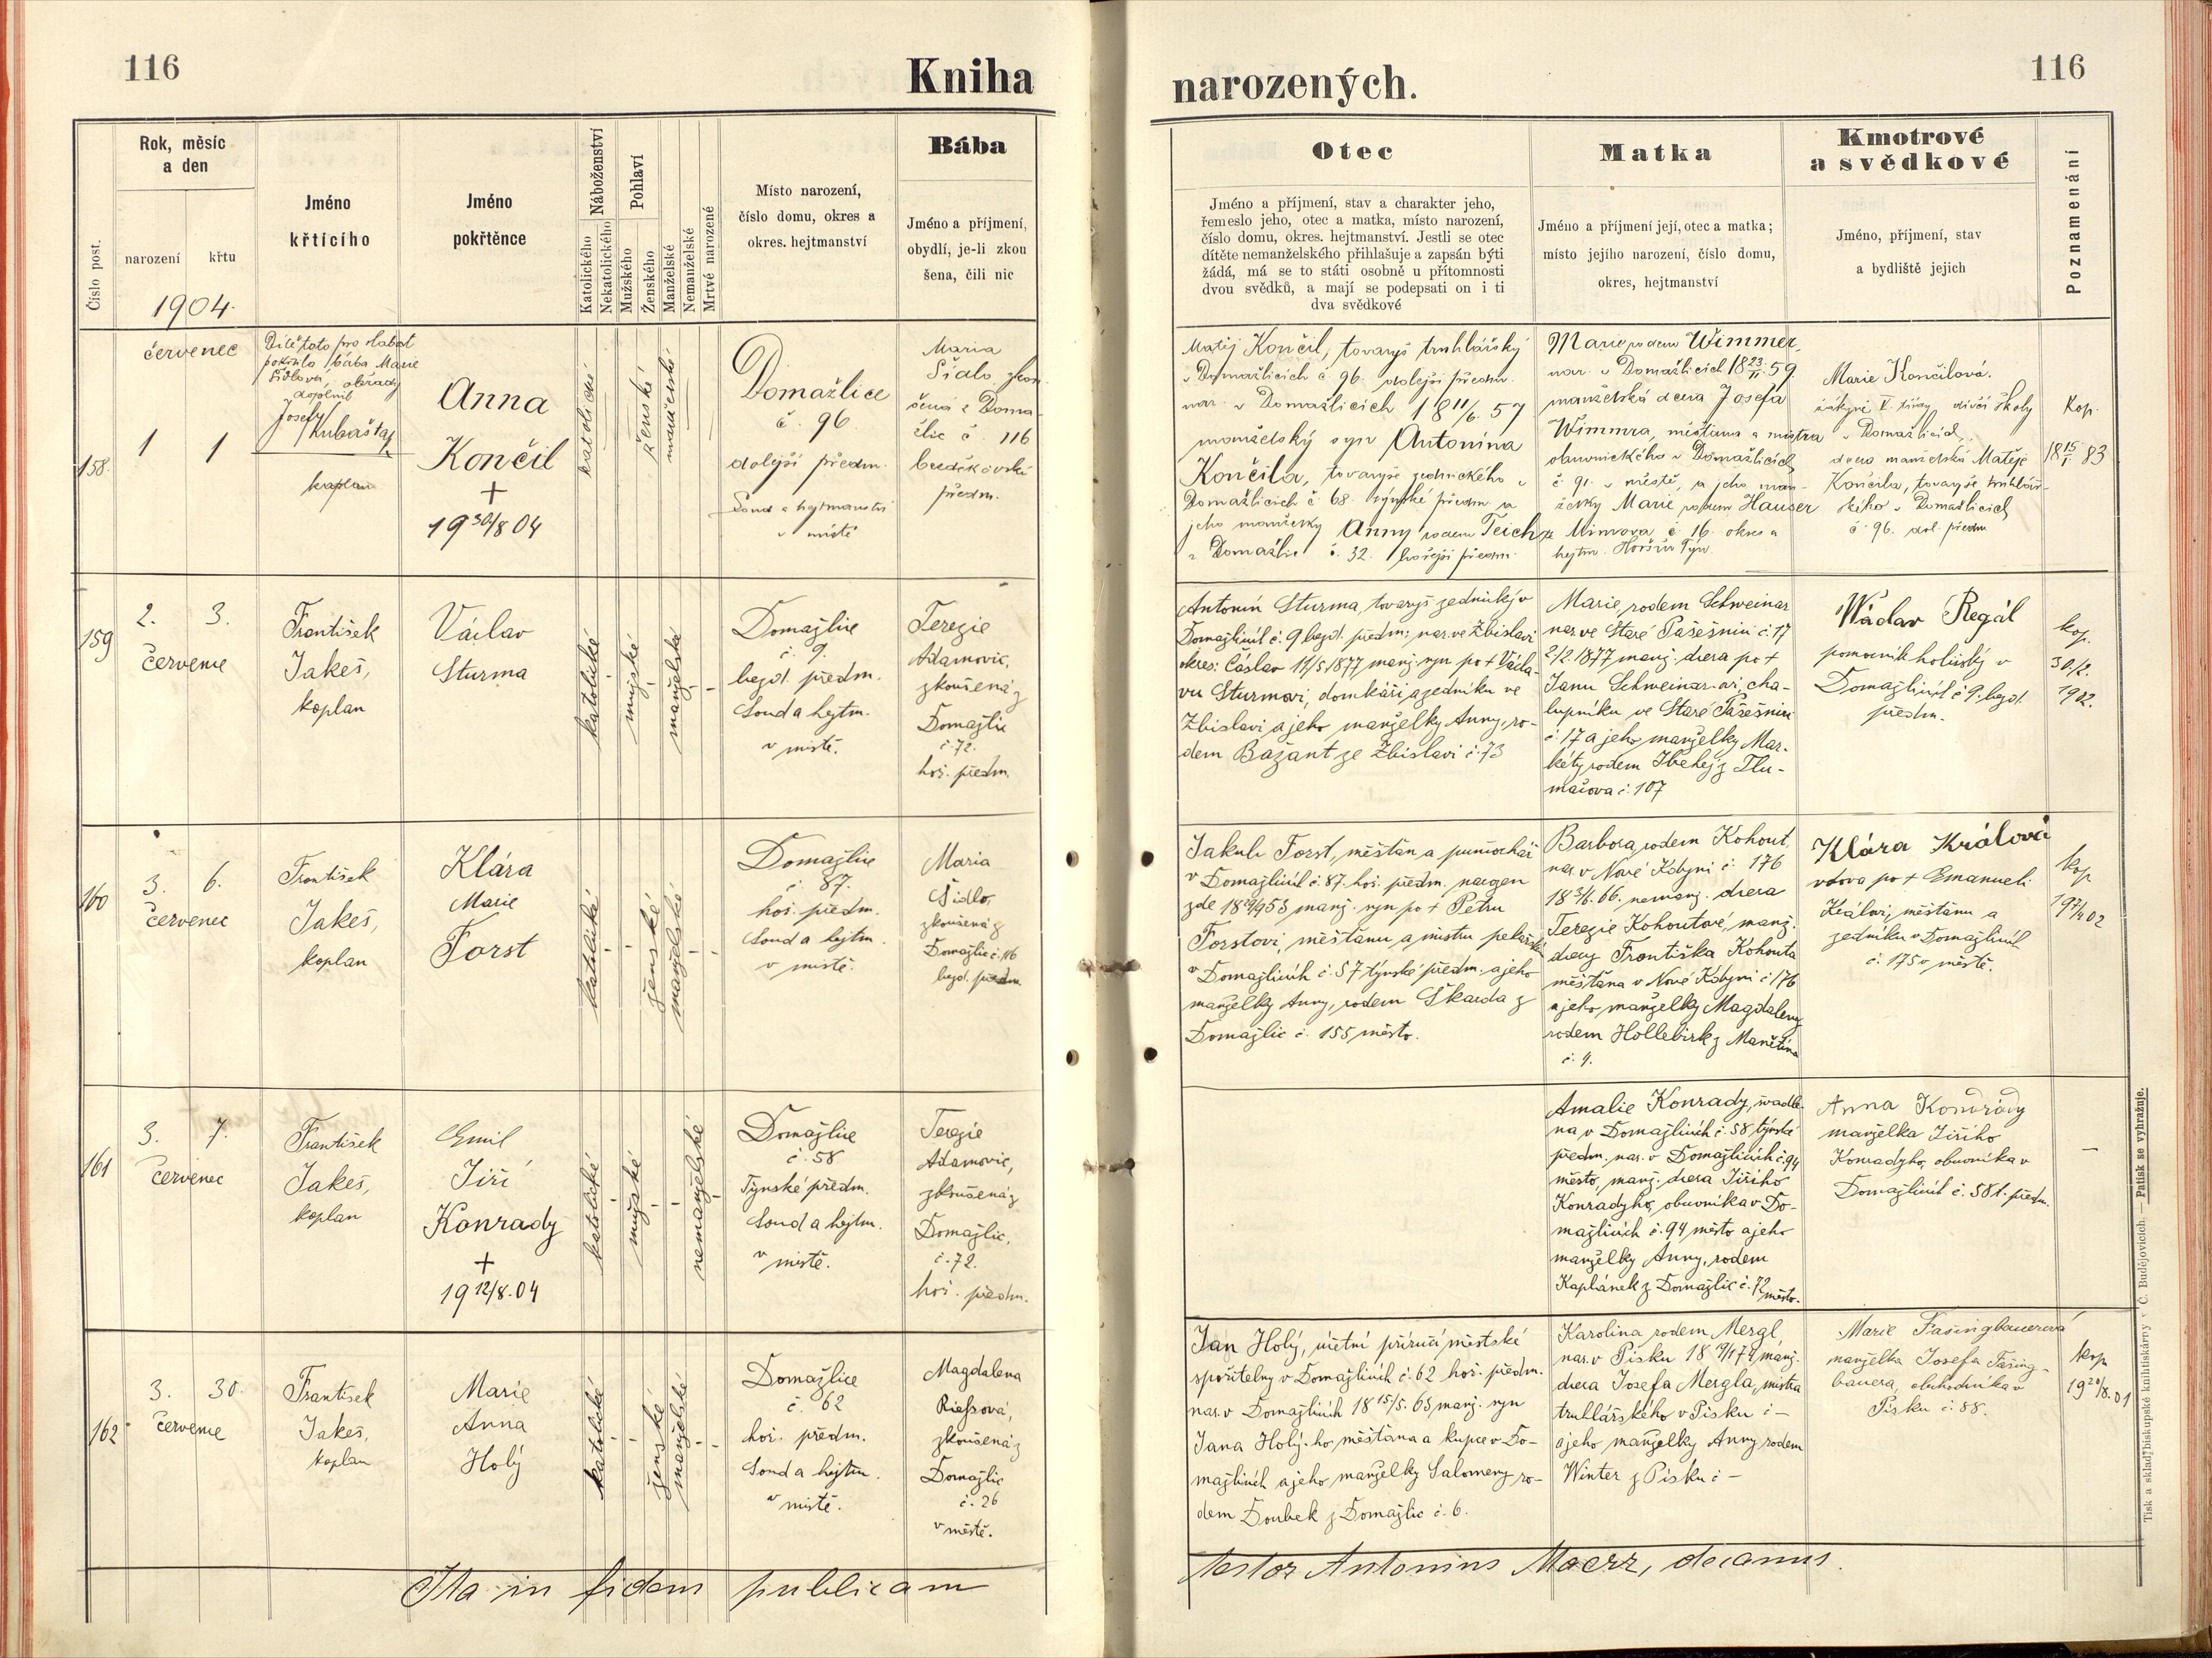 116
Kniha
narozených.
116
Číslo post.
Rok, měsíc
a den
narození
křtu
1904.
Jméno
křtícího
Jméno
pokřtěnce
Náboženství
Katolického
Nekatolického
Pohlaví
Mužského
Ženského
Manželské
Nemanželské
Mrtvé narozené
Místo narození,
číslo domu, okres a
okres. hejtmanství
Bába
Jméno a příjmení,
obydlí, je-li zkou
šena, čili nic
Otec
Jméno a příjmení, stav a charakter jeho,
řemeslo jeho, otec a matka, místo narození,
číslo domu, okres. hejtmanství. Jestli se otec
dítěte nemanželského přihlašuje a zapsán býti
žádá, má se to státi osobně u přítomnosti
dvou svědků, a mají se podepsati on i ti
dva svědkové
Matka
Jméno a příjmení její, otec a matka;
místo jejího narození, číslo domu,
okres, hejtmanství
Kmotrové
a svědkové
Jméno, příjmení, stav
a bydliště jejich
Poznamenání
158.
červenec
1 1
Dítě toto pro slabost
pokřtila bába Marie
Šídlová, obřady
doplnil
Josef
Kubašta,
kaplan
Anna
Končil
+
19 30/8 04
katolické
ženské
manželské
Domažlice
č. 96
dolejší předm.
Soud a hejtmanství
v místě
Maria
Šídlo, zkou
šená z Doma
žlic č. 116
bezděkovské
předm.
Matěj Končil, tovaryš truhlářský
v Domažlicích č 96. dolejší předm.
nar. v Domažlicích 18 11/6. 57
manželský syn Antonína
Končila, tovaryše zednického v
Domažlicích č. 68. týnské předm a
jeho manželky Anny rodem Teich
z Domažlic č. 32. hořejší předm.
Marie rodem Wimmer,
nar. v Domažlicích 18 23/11 59.
manželská dcera Josefa
Wimmra, měšťana a mistra
obuvnického v Domažlicích
č. 91. v městě, a jeho man-
želky Marie rodem Hauser
z Mirkova č. 16. okres a
hejtm. Horšův Týn.
Marie Končilová.
žákyně V. třídy dívčí školy
v Domažlicích,
dcera manželská Matěje
Končila, tovaryše truhlář-
ského v Domažlicích
č. 96. dol. předm
Kop.
18 15/1 83
159
2. 3.
Červenec
František
Jakeš,
kaplan
Václav
Sturma
katolické
mužské
manželské
Domažlice
č. 9.
bezd. předm.
Soud a hejtm.
v místě.
Terezie
Adamovic,
zkoušená z
Domažlic
č. 72.
hoř. předm.
Antonín Sturma, tovaryš zednický v
Domažlicích č. 9 bezd. předm; nar. ve Zbislavi
okres: Čáslav 12/5 1877 manž. syn po + Václa-
vu Sturmovi, domkáři a zedníku ve
Zbislavi a jeho manželky Anny, ro-
dem Bažant ze Zbislavi č. 73
Marie, rodem Schweinar
nar. ve Staré Pašešnici č. 17
2/2. 1877 manž. dcera po +
Janu Schweinar-ovi, cha-
lupníku ve Staré Pašešnici
č. 17 a jeho manželky Mar-
kéty rodem z Tlu-
mačova č. 107
Wáclav Regál
pomocník holičský v
Domažlicích č 9. bezd.
předm.
kop.
30./2.
1902.
160
3. 6.
Červenec
František
Jakeš,
kaplan
Klára
Marie
Forst
katolické
ženské
manželské
Domažlice
č. 87.
hoř. předm.
Soud a hejtm.
v místě.
Maria
Šídlo,
zkoušená z
Domažlic č. 116
bezd. předm.
Jakub Forst, měšťan a punčochář
v Domažlicích č. 87. hoř. předm. narozen
zde manž. syn po + Petru
Forstovi, měšťanu a mistru pekařském
v Domažlicích č. 57 týnské předm. a jeho
manželky Anny, rodem Škarda z
Domažlic č. 155 město.
Barbora, rodem Kohout,
nar. v Nové Kdyni č. 176
18 3/6. 66. nemanž. dcera
Terezie Kohoutové, manž.
dcery Františka Kohouta
měšťana v Nové Kdyni č 176
a jeho manželky Magdaleny
rodem Hollebirk z Manětína
č. 9.
Klára Králová
vdova po + Emanueli
Královi, měšťanu a
zedníku v Domažlicích
č. 175 v městě.
kop
19 7/4 02
161
3. 7.
Červenec
František
Jakeš,
kaplan
Emil
Jiří
Konrady
+
19 12/8. 04
katolické
mužské
nemanželské
Domažlice
č. 58
Týnské předm.
Soud a hejtm.
v místě.
Terezie
Adamovic,
zkoušená z
Domažlic,
č. 72.
hoř. předm.
Amalie Konrady, švadle-
na v Domažlicích č. 58 týnské
předm. nar. v Domažlicích č. 94
město, manž. dcera Jiřího
Konradyho, obuvníka v Do-
mažlicích č. 94 město a jeho
manželky Anny, rodem
Kaplánek z Domažlic č. 72
město.
Anna Konrády
manželka Jiřího
Konradyho, obuvníka v
Domažlicích č. 58 t. předm.
—
162
3. 30.
Červenec
František
Jakeš,
kaplan
Marie
Anna
Holý
katolické
ženské
manželské
Domažlice
č. 62
hoř. předm.
Soud a hejtm.
v místě.
Magdalena
Rieſsová,
zkoušená z
Domažlic
č. 26
v městě.
Jan Holý, účetní příručí městské
spořitelny v Domažlicích č. 62 hoř. předm.
nar. v Domažlicích 18 15/5. 65 manž. syn
Jana Holý-ho, měšťana a kupce v Do-
mažlicích a jeho manželky Salomeny ro-
dem Doubek z Domažlic č. 6.
Karolina rodem Mergl,
nar. v Písku manž.
dcera Josefa Mergla, mistra
truhlářského v Písku č —
a jeho manželky Anny rodem
Winter z Písku č —
Marie Fašingbauerová
manželka Josefa Fašing-
bauera, obchodníka v
Písku č. 88.
kop
19 20/8. 01
Ita in fidem publicam
testor Antonius Maerz, decanus.
Tisk a sklad biskupské knihtiskárny v Č. Budějovicích. — Patisk se vyhražuje.